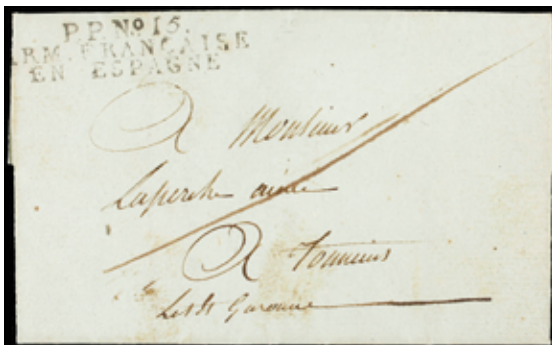 P.P. Nº 15.
ARM. FRANÇAISE
EN ESPAGNE
A Monsieur
Laperche ainé
A Tonneins
Lot & Garonne